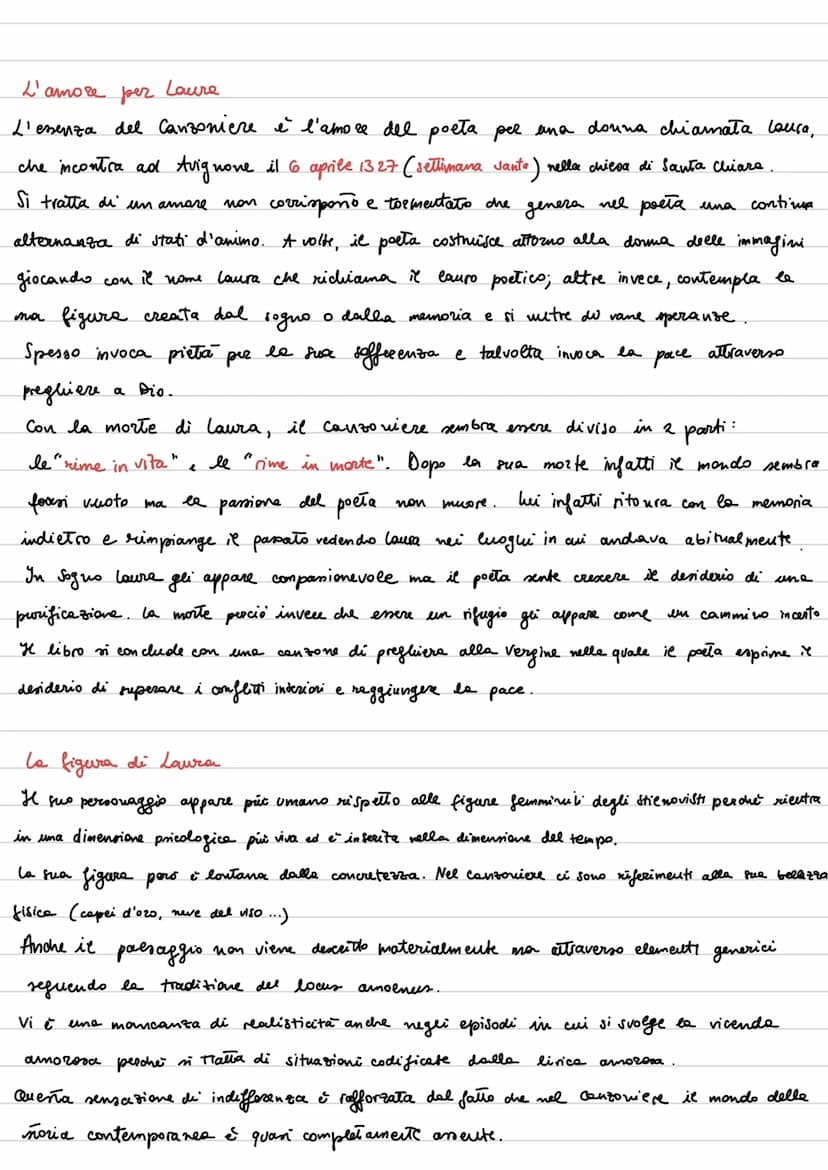 L'amore per Laura
L'essenza del Canzoniere è l'amore del poeta per una donna chiamata Laura,
che incontra ad Avignone il 6 aprile 1327 (settimana santa) nella chiesa di Santa Chiara.
Si tratta di un amore non corrisposto e tormentato che genera nel poeta una continua
alternanza di stati d'animo. A volte, il poeta costruisce attorno alla donna delle immagini
giocando con il nome Laura che richiama il lauro poetico; altre invece, contempla la
sua figura creata dal sogno o dalla memoria e si nutre di vane speranze.
Spesso invoca pietà per la sua sofferenza e talvolta invoca la pace attraverso
preghiere a Dio.
Con la morte di Laura, il canzoniere sembra essere diviso in 2 parti:
le "rime in vita" e le "rime in morte". Dopo la sua morte infatti il mondo sembra
farsi vuoto ma la passione del poeta non muore. Lui infatti ritorna con la memoria
indietro e rimpiange il passato vedendo Laura nei luoghi in cui andava abitualmente.
In sogno Laura gli appare compassionevole ma il poeta sente crescere il desiderio di una
purificazione. La morte perciò invece che essere un rifugio gli appare come un cammino incerto
Il libro si conclude con una canzone di preghiera alla Vergine nella quale il poeta esprime il
desiderio di superare i conflitti interiori e raggiungere la pace.
La figura di Laura
Il suo personaggio appare più umano rispetto alle figure femminili degli stilnovisti perché rientra
in una dimensione psicologica più viva ed è inserita nella dimensione del tempo.
La sua figura però è lontana dalla concretezza. Nel canzoniere ci sono riferimenti alla sua bellezza
fisica (capei d'oro, neve del viso ...)
Anche il paesaggio non viene descritto materialmente ma attraverso elementi generici
seguendo la tradizione del locus amoenus.
Vi è una mancanza di realisticità anche negli episodi in cui si svolge la vicenda
amorosa perché si tratta di situazioni codificate dalla lirica amorosa.
Questa sensazione di indifferenza è rafforzata dal fatto che nel Canzoniere il mondo della
storia contemporanea è quasi completamente assente.